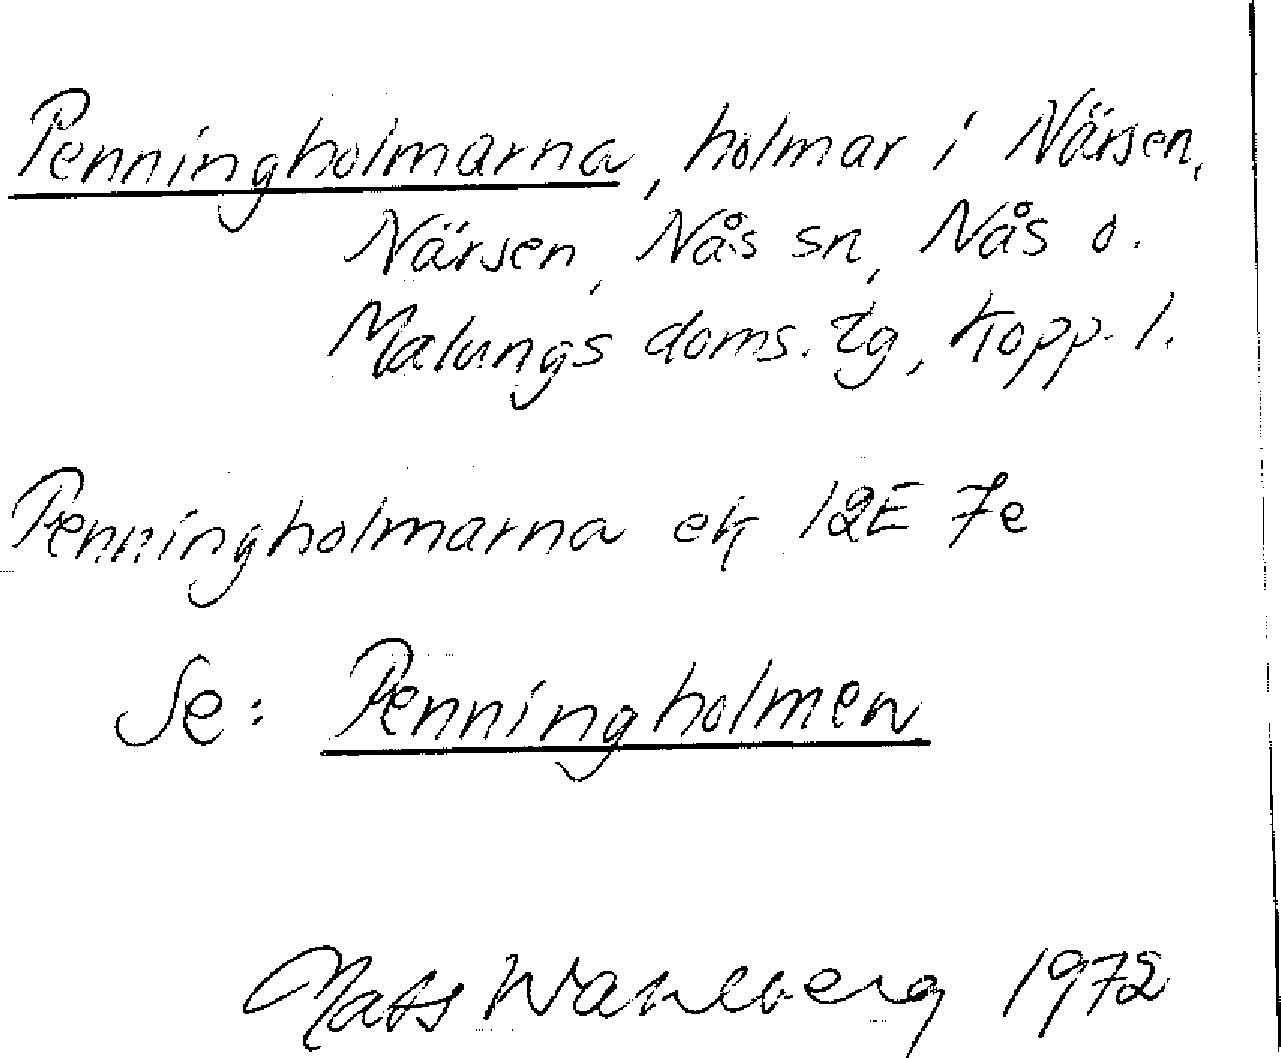 Penningholmarna, holmar i Närsen,
Närsen, Nås sn, Nås o.
Malungs doms. tg, Kopp. l.
Penningholmarna ek 12E 7e
Se: Penningholmen
Mats Wahlberg 1972